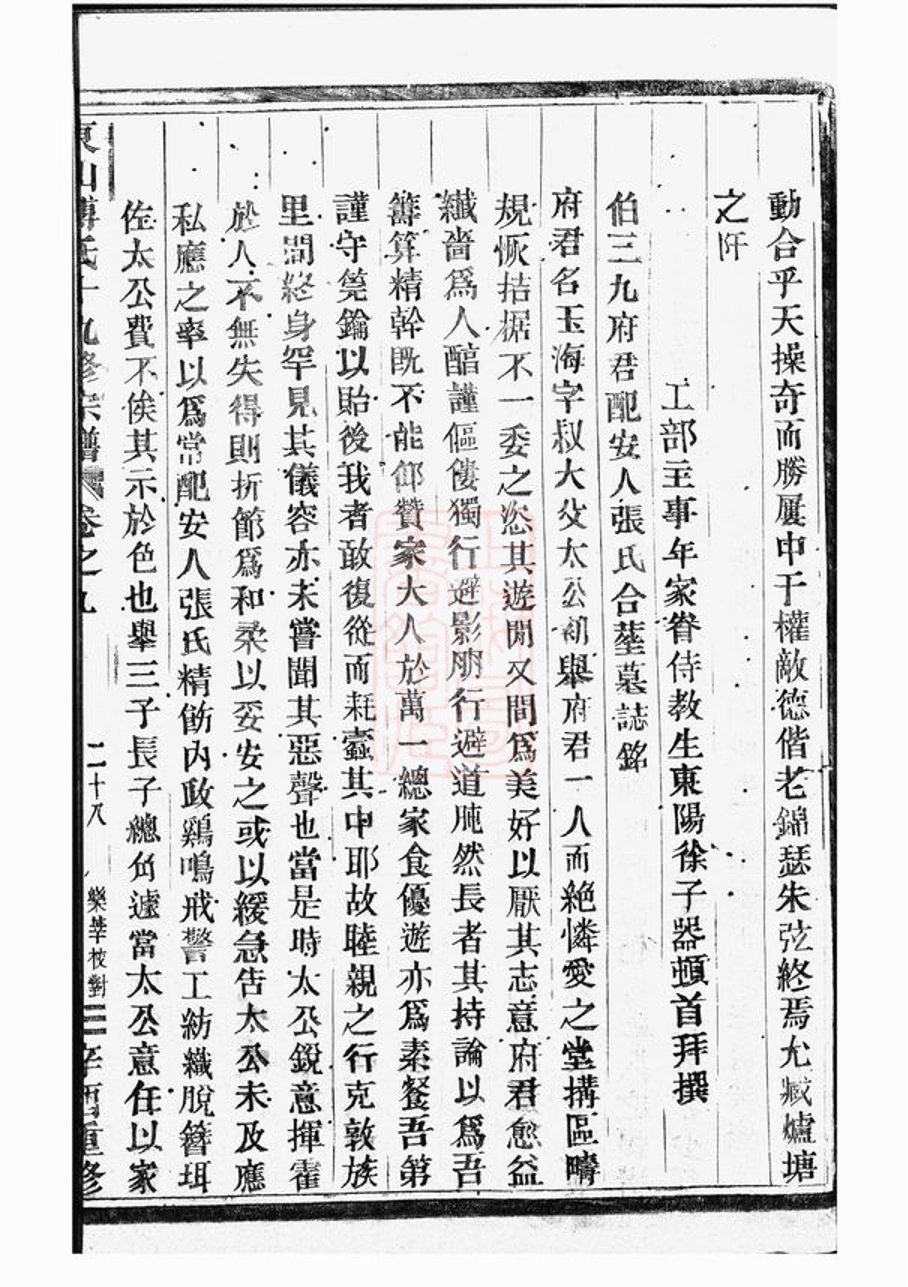 動合乎天操奇而勝屢中于權敵德偕老錦瑟朱弦終焉允臧爐塘
之阡
工部主事年家眷侍教生東陽徐子器頓首拜撰
伯三九府君配安人張氏合塟墓誌銘
府君名玉海字叔大父太公初舉府君一人而絶憐愛之堂搆區疇
規恢拮据不一委之恣其遊閒又間爲美好以厭其志意府君愈益
纎嗇爲人醕謹傴僂獨行避影朋行避道肫然長者其持論以爲吾
籌算精幹既不能仰贊家大人於萬一總家食優遊亦爲素餐吾第
謹守筦鑰以貽後我者敢復從而耗蠧其中耶故睦親之行克敦族
里閭終身罕見其儀容亦未嘗聞其惡聲也當是時太公銳意揮霍
於人不無失得則折節爲和柔以妥安之或以緩急告太公未及應
私應之率以爲常配安人張氏精飭内政鷄鳴戒警工紡織脫簪珥
佐太公費不俟其示於色也舉三子長子總角遽當太公意任以家
東山傅氏十九修宗譜 卷之九 二十八 樂莘校對 辛酉重修